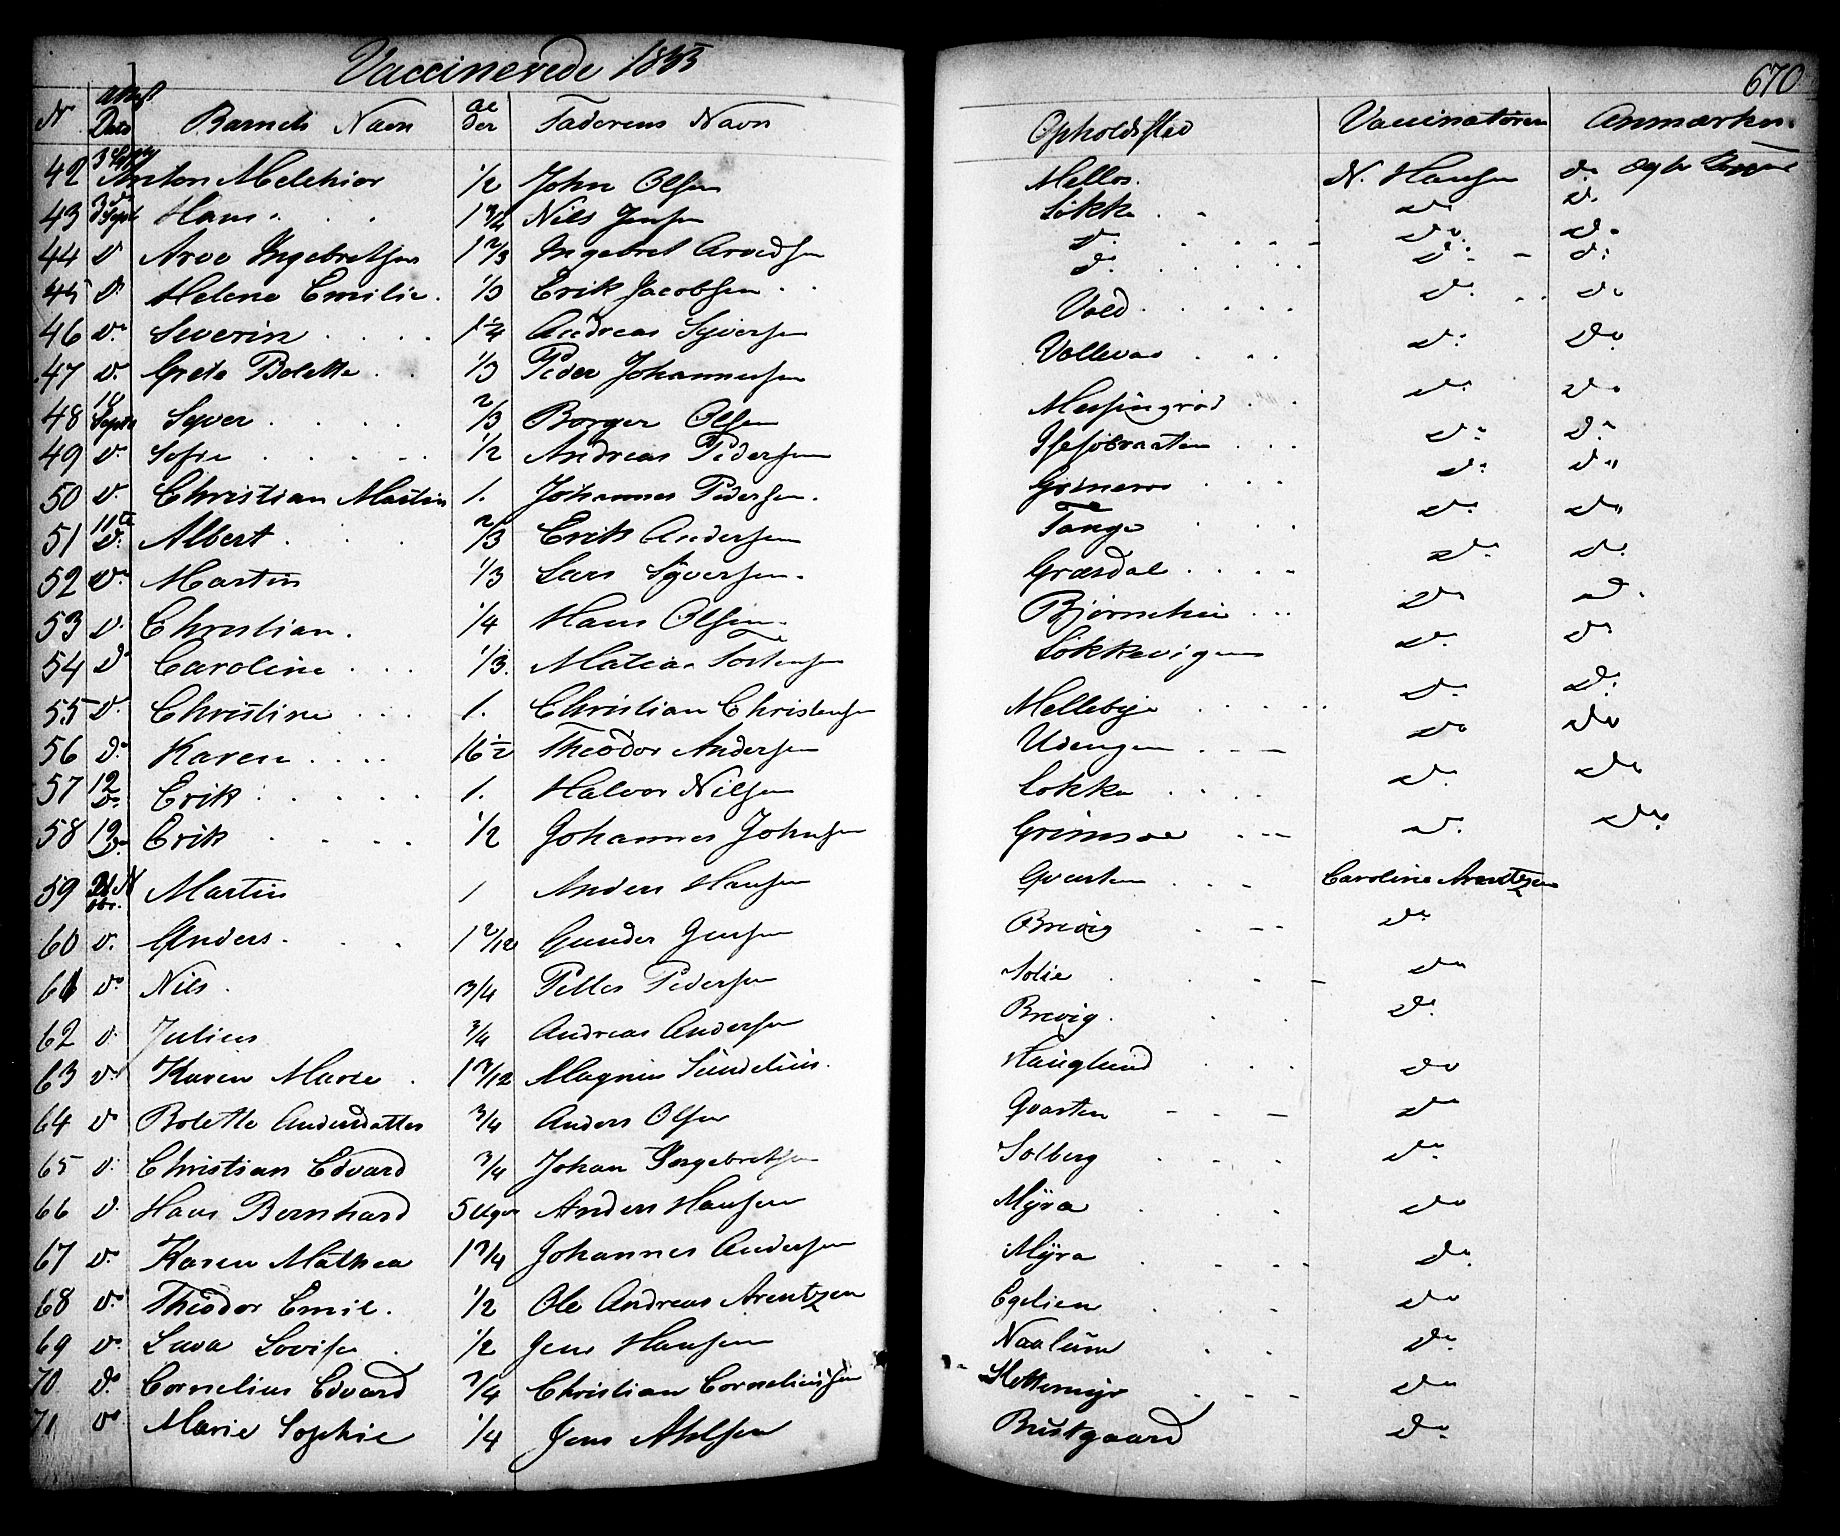 Vaccinerede 1855
670
N Attest Dato Barnets Navn Alder Faderens Navn Opholdssted Vaccinatøren Anmærkn.
42 3 Sept Anton Melchior 1/2 John Olsen Mellos. N. Hansen do
43 Sept Hans 1 3/4 Nils Jensen Løkke do do
44 do Arve Ingebretsen 1 2/3 Ingebret Arvedsen do do do
45 do Helene Emilie 1/3 Erik Jacobsen do do do
46 do Severin 1 1/4 Andreas Syversen Vold do do
47 do Grete Bolette 1/3 Peder Johannesen Vollevas do do
48 10 Septb Syver 2/3 Borger Olsen Messingrød do do
49 do Sofie 1/2 Andreas Pedersen do do
50 do Christian Martin 1. Johannes Pedersen. do do
51 11te do Albert 2/3 Erik Andersen Tange do do
52 do Martin 1/3 Lars Syversen. Græsdal do do
53 do Christian. 1/4 Hans Olsen Bjørnehi do do
54 do Caroline 1/3. Matias Tostensen Løkkevigen do do
55 do Christine 1. Christian Christensen Melleby do do
56 do Karen 16 1/2 Theodor Andersen Udengen do do
57 12 do Erik 1. Halvor Nilsen Løkke do do
58 19 do Erik 1/2 Johannes Johnsen Grimsøe do do
59 21 Nobr. Martin 1 Anders Hansen Qvarten Caroline Arentzen
60 do Anders. 1 2/12 Gunder Jensen Brevig do
61 do Nils. 3/4 Pelles Pedersen Solie do
62 do Julius 3/4 Andreas Andersen Brevig. do
63 do Karen Marie 1 2/12 Magnus Sundelius. Hauglund do
64 do Bolette Andersdatter 3/4 Anders Olsen Qvarten do
65 do Christian Edvard 3/4 Johan Ingebretsen Solberg do
66 do Hans Bernhard 5 Uger Anders Hansen Myra do
67 do Karen Mathea 1 3/4 Johannes Andersen Myra do
68 do Theodor Emil. 1/2 Ole Andreas Arentzen Egelien do
69 do Lava Lovise 1/2 Jens Hansen Naalum do
70 do Cornelius Edvard 3/4 Christian Corneliussen Slettemyr do
71 do Marie Sophie 1/4 Jens Ahlsen Brustgaard do